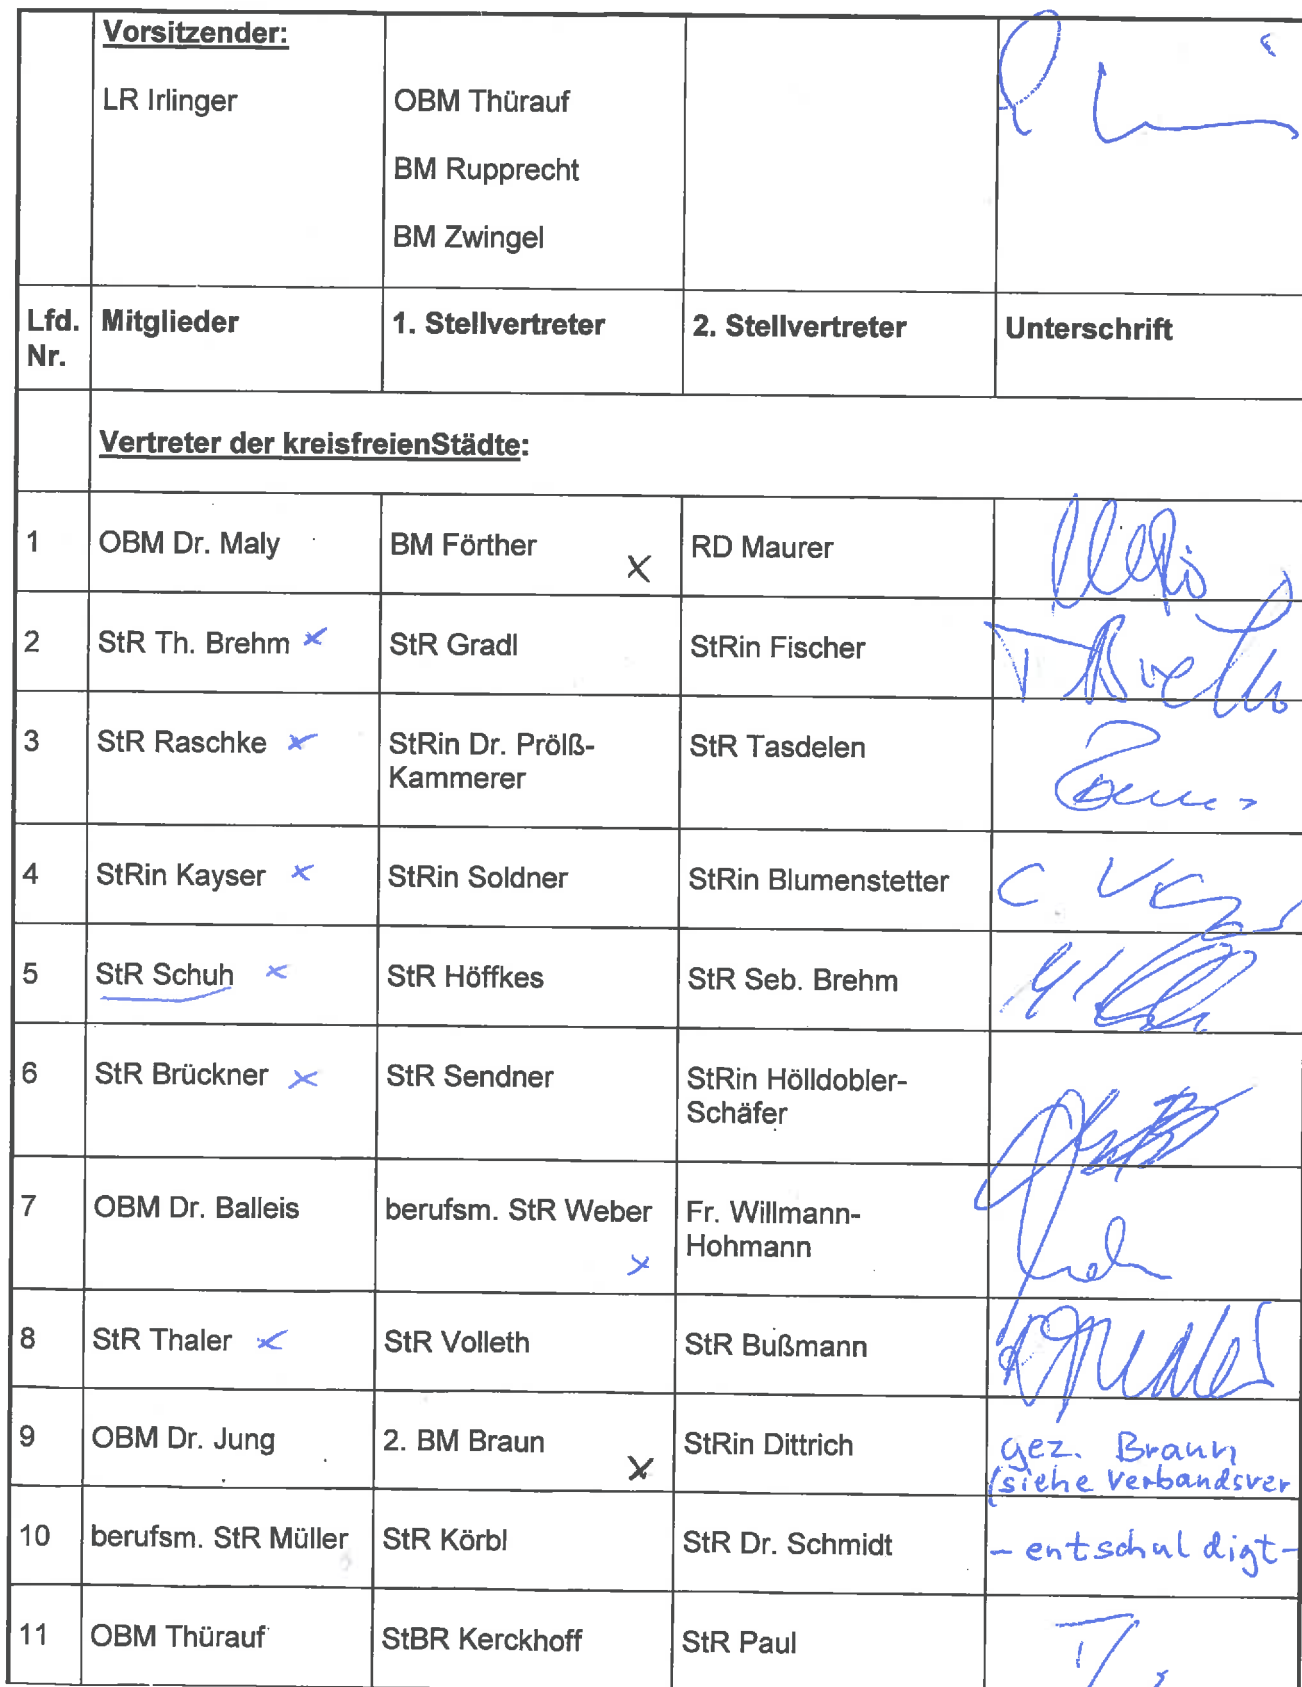 Vorsitzender:
LR Irlinger
OBM Thürauf
BM Rupprecht
BM Zwingel
Lfd. Nr. Mitglieder 1. Stellvertreter 2. Stellvertreter Unterschrift
Vertreter der kreisfreienStädte:
1 OBM Dr. Maly BM Förther x RD Maurer
2 StR Th. Brehm x StR Gradl StRin Fischer
3 StR Raschke x StRin Dr. Prölß- StR Tasdelen
Kammerer
4 StRin Kayser x StRin Soldner StRin Blumenstetter
5 StR Schuh x StR Höffkes StR Seb. Brehm
6 StR Brückner x StR Sendner StRin Hölldobler-
Schäfer
7 OBM Dr. Balleis berufsm. StR Weber Fr. Willmann-
x Hohmann
8 StR Thaler x StR Volleth StR Bußmann
9 OBM Dr. Jung 2. BM Braun x StRin Dittrich gez. Braun
(siehe Verbandsver
10 berufsm. StR Müller StR Körbl StR Dr. Schmidt - entschuldigt -
11 OBM Thürauf StBR Kerckhoff StR Paul